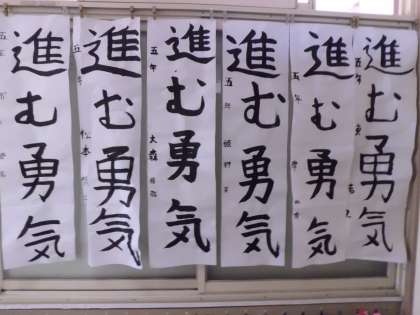 進む勇気
五年
進む勇気
五年 松本
進む勇気
五年 大森
進む勇気
五年
進む勇気
五年
進む勇気
五年